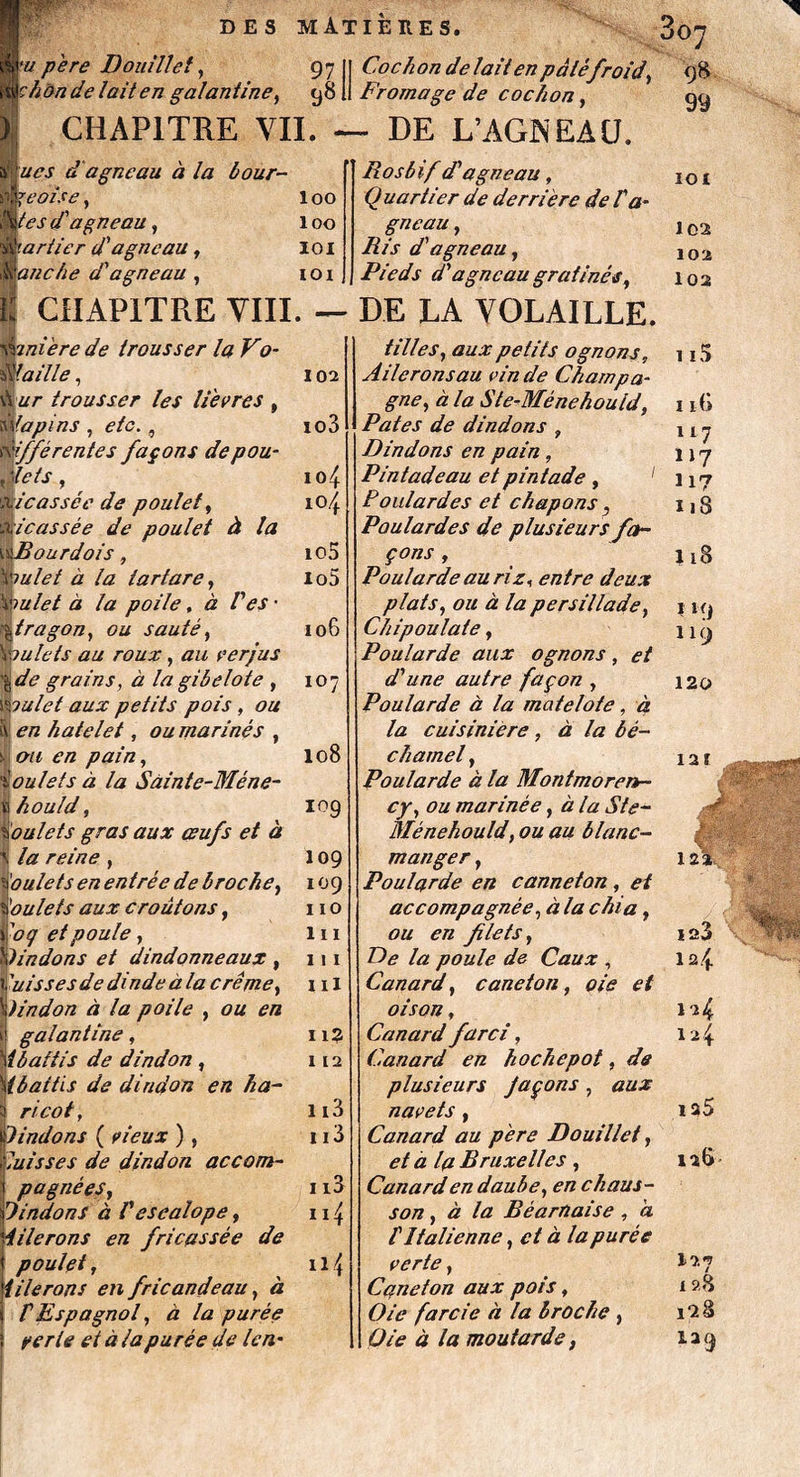 DES MATIÈRES. 307
père Douillet, 97
de lait en galantine, 98
Cochon de lait en pâté froid, 98
Fromage de cochon, 99
CHAPITRE VII. — DE L'AGNEAU.
d'agneau à la bour-
100
d'agneau, 100
d'agneau, 101
d'agneau, 101
Rosbif d'agneau, 101
Quartier de derrière de l'a-
gneau, 102
Ris d'agneau, 102
Pieds d'agneau gratinés, 102
CHAPITRE VIII. — DE LA VOLAILLE.
de trousser la Vo-
102
trousser les lièvres,
etc., 103
façons de pou-
104
de poulet, 104
de poulet à la
Bourdois, 105
à la tartare, 105
à la poile, à l'es-
tragon, ou sauté, 106
au roux, au verjus
de grains, à la gibelote, 107
aux petits pois, ou
en hatelet, ou marinés,
ou en pain, 108
à la Sainte-Méne-
hould, 109
gras aux œufs et à
la reine, 109
en entrée de broche, 109
aux croûtons, 110
et poule, 111
et dindonneaux, 111
de dinde à la crême, 111
à la poile, ou en
galantine, 112
de dindon, 112
de dindon en ha-
ricot, 113
(vieux), 113
de dindon accom-
pagnées, 113
à l'escalope, 114
en fricassée de
poulet, 114
en fricandeau, à
l'Espagnol, à la purée
verte et à la purée de len-
tilles, aux petits ognons, 115
Ailerons au vin de Champa-
gne, à la Ste-Ménehould, 116
Pates de dindons, 117
Dindons en pain, 117
Pintadeau et pintade, 117
Poulardes et chapons, 118
Poulardes de plusieurs fa-
çons, 118
Poularde au riz, entre deux
plats, ou à la persillade, 119
Chipoulate, 119
Poularde aux ognons, et
d'une autre façon, 120
Poularde à la matelote, à
la cuisinière, à la bé-
chamel, 121
Poularde à la Montmoren-
cy, ou marinée, à la Ste-
Ménehould, ou au blanc-
manger, 122
Poularde en canneton, et
accompagnée, à la chia,
ou en filets, 123
De la poule de Caux, 124
Canard, caneton, oie et
oison, 124
Canard farci, 124
Canard en hochepot, de
plusieurs façons, aux
navets, 125
Canard au père Douillet,
et à la Bruxelles, 126
Canard en daube, en chaus-
son, à la Béarnaise, à
l'Italienne, et à la purée
verte, 127
Caneton aux pois, 128
Oie farcie à la broche, 128
Oie à la moutarde, 129